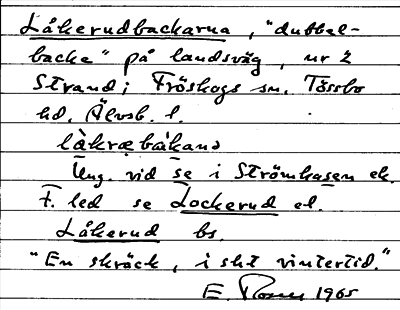 Låkerudbackarna, "dubbel-
backe" på landsväg, nr 2
Strand; Fröskogs sn. Tössbo
hd. Älvsb. l.
låkræbàkanə
Ung. vid se i Strömhasen ek.
F. led se Lockerud el.
Låkerud bs.
"En skräck, i sht vintertid."
E. 1965